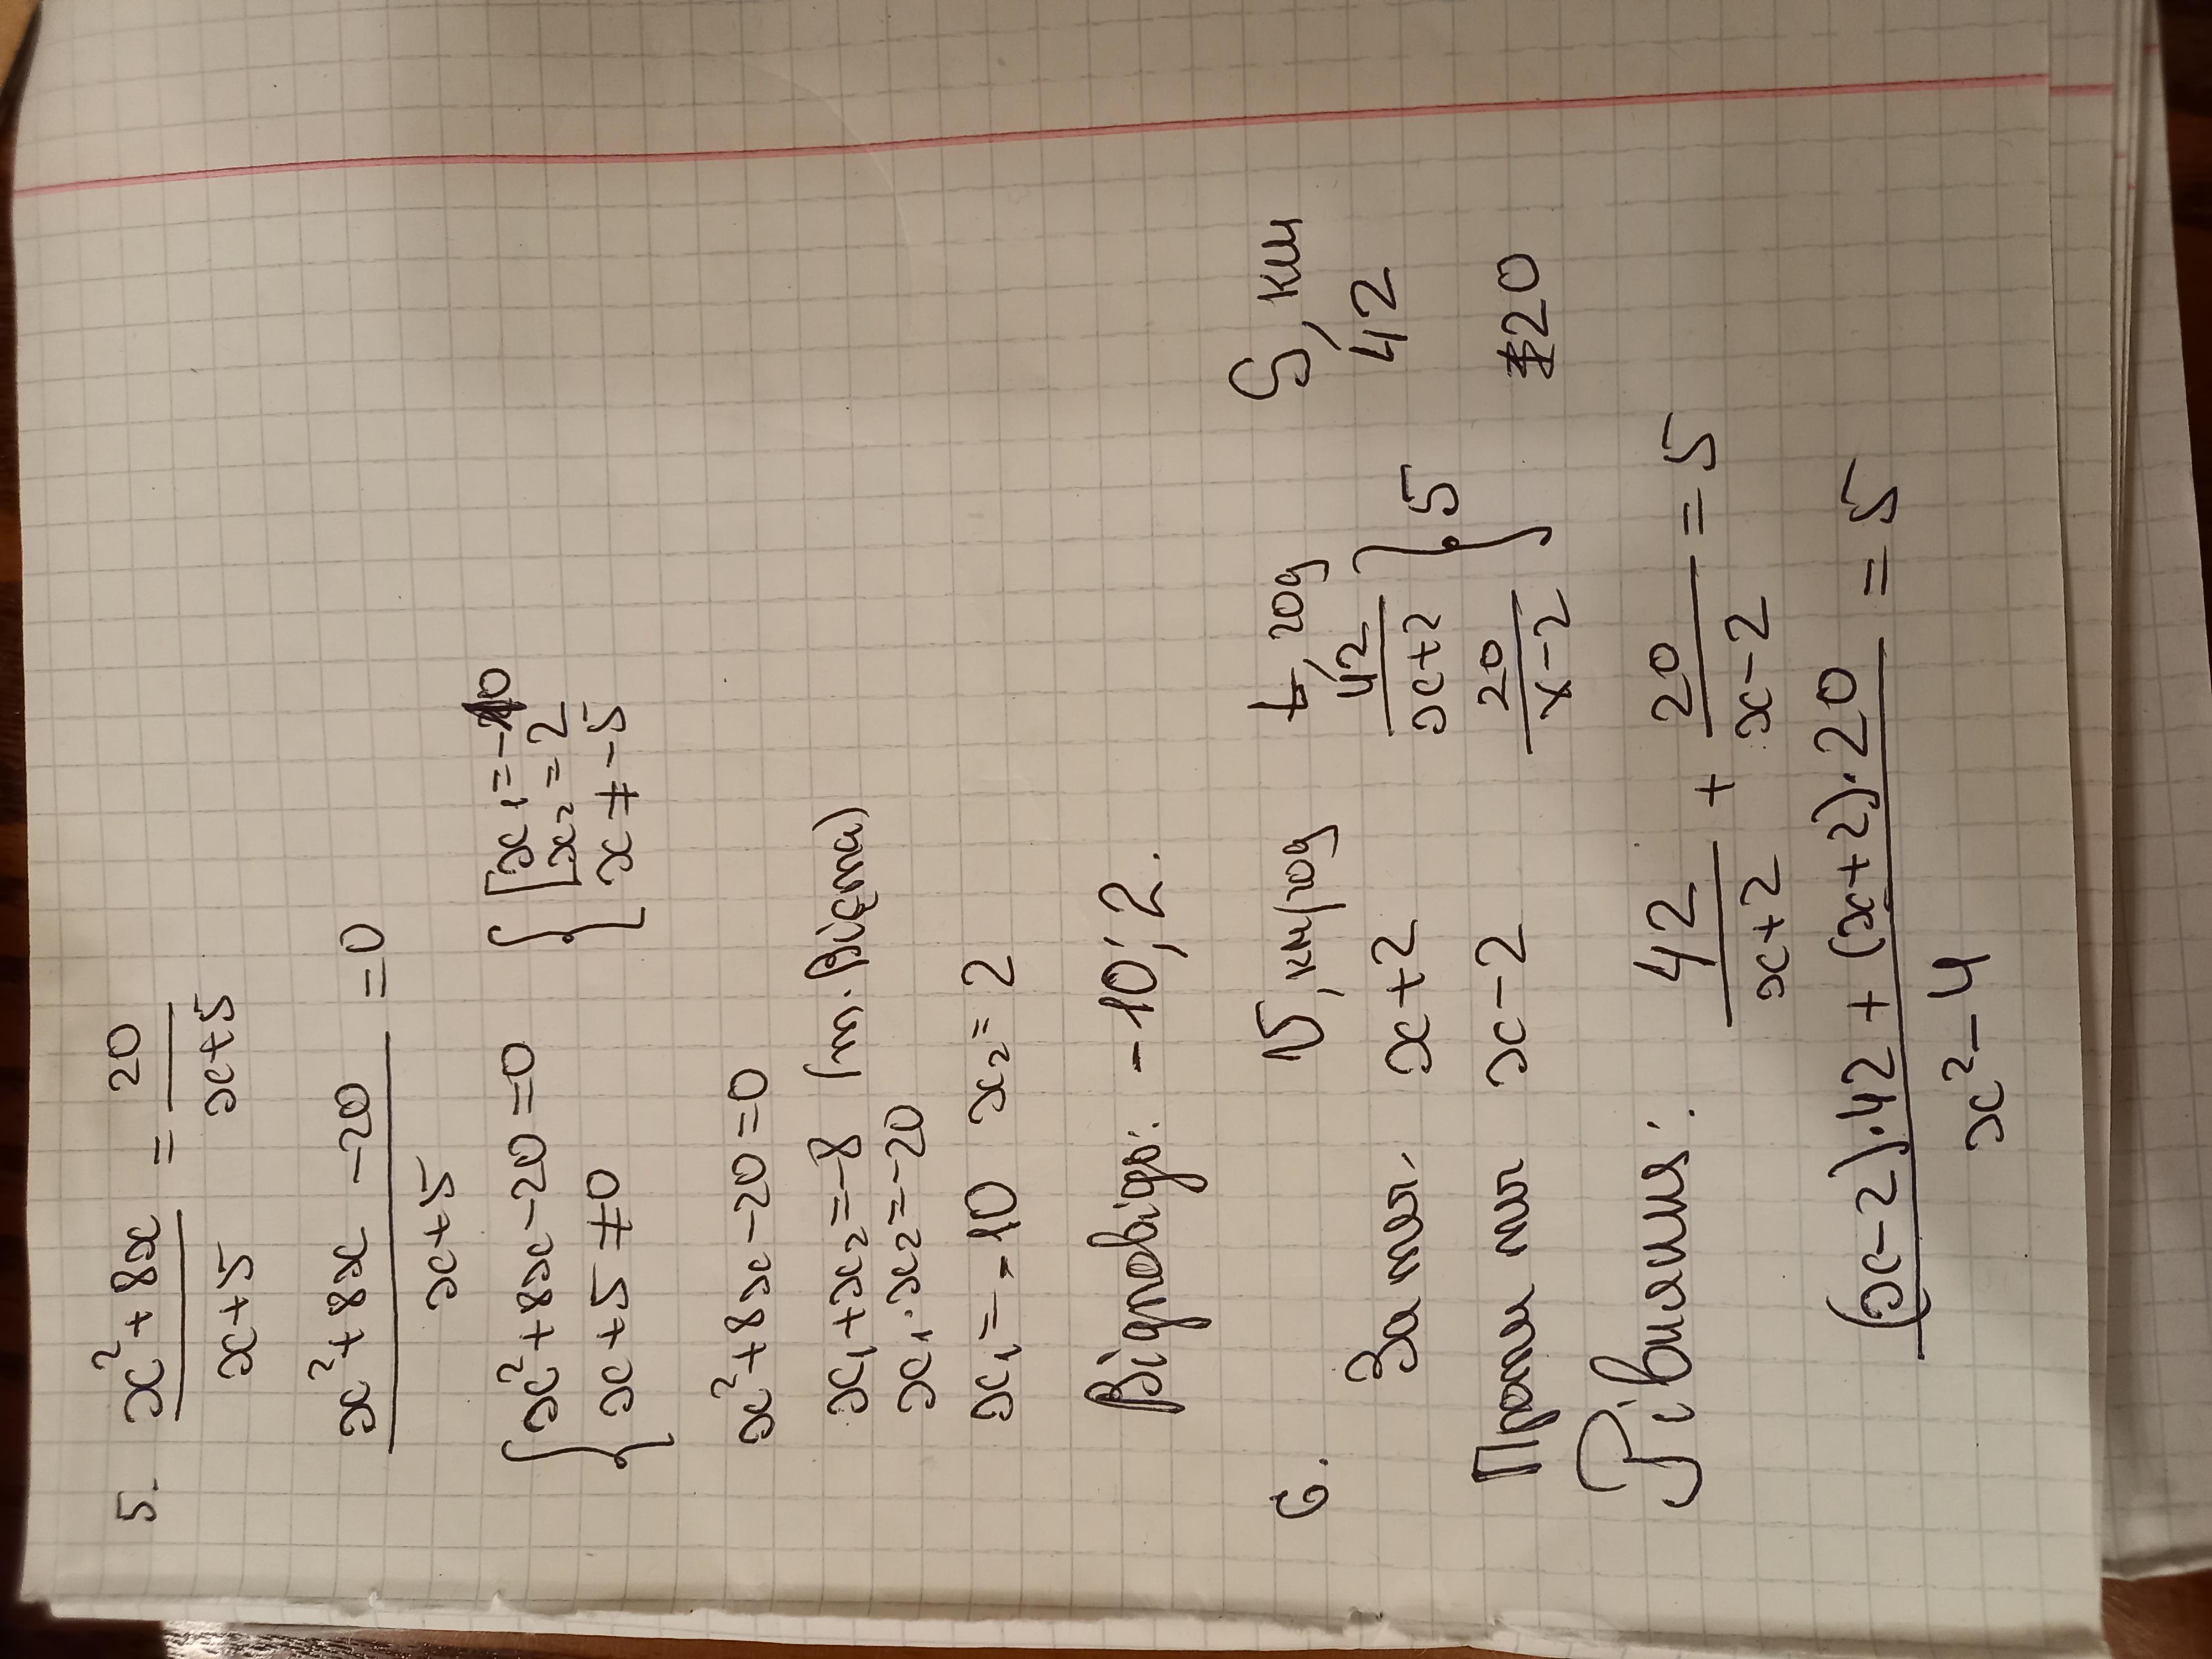 5. x²+8x/x+5 = 20/x+5
x²+8x-20/x+5 =0
{x²+8x-20=0 {[x₁=-10
{x+5≠0 [x₂=2
x≠-5
x²+8x-20=0
x₁+x₂=-8 (т. Вієта)
x₁·x₂=-20
x₁=-10 x₂=2
Відповідь: -10; 2.
6. V, км/год t, год S, км
За теч. x+2 42/x+2 }5 42
Проти теч x-2 20/x-2 20
Рівняння: 42/x+2 + 20/x-2 = 5
(x-2)·42+(x+2)·20/x²-4 = 5